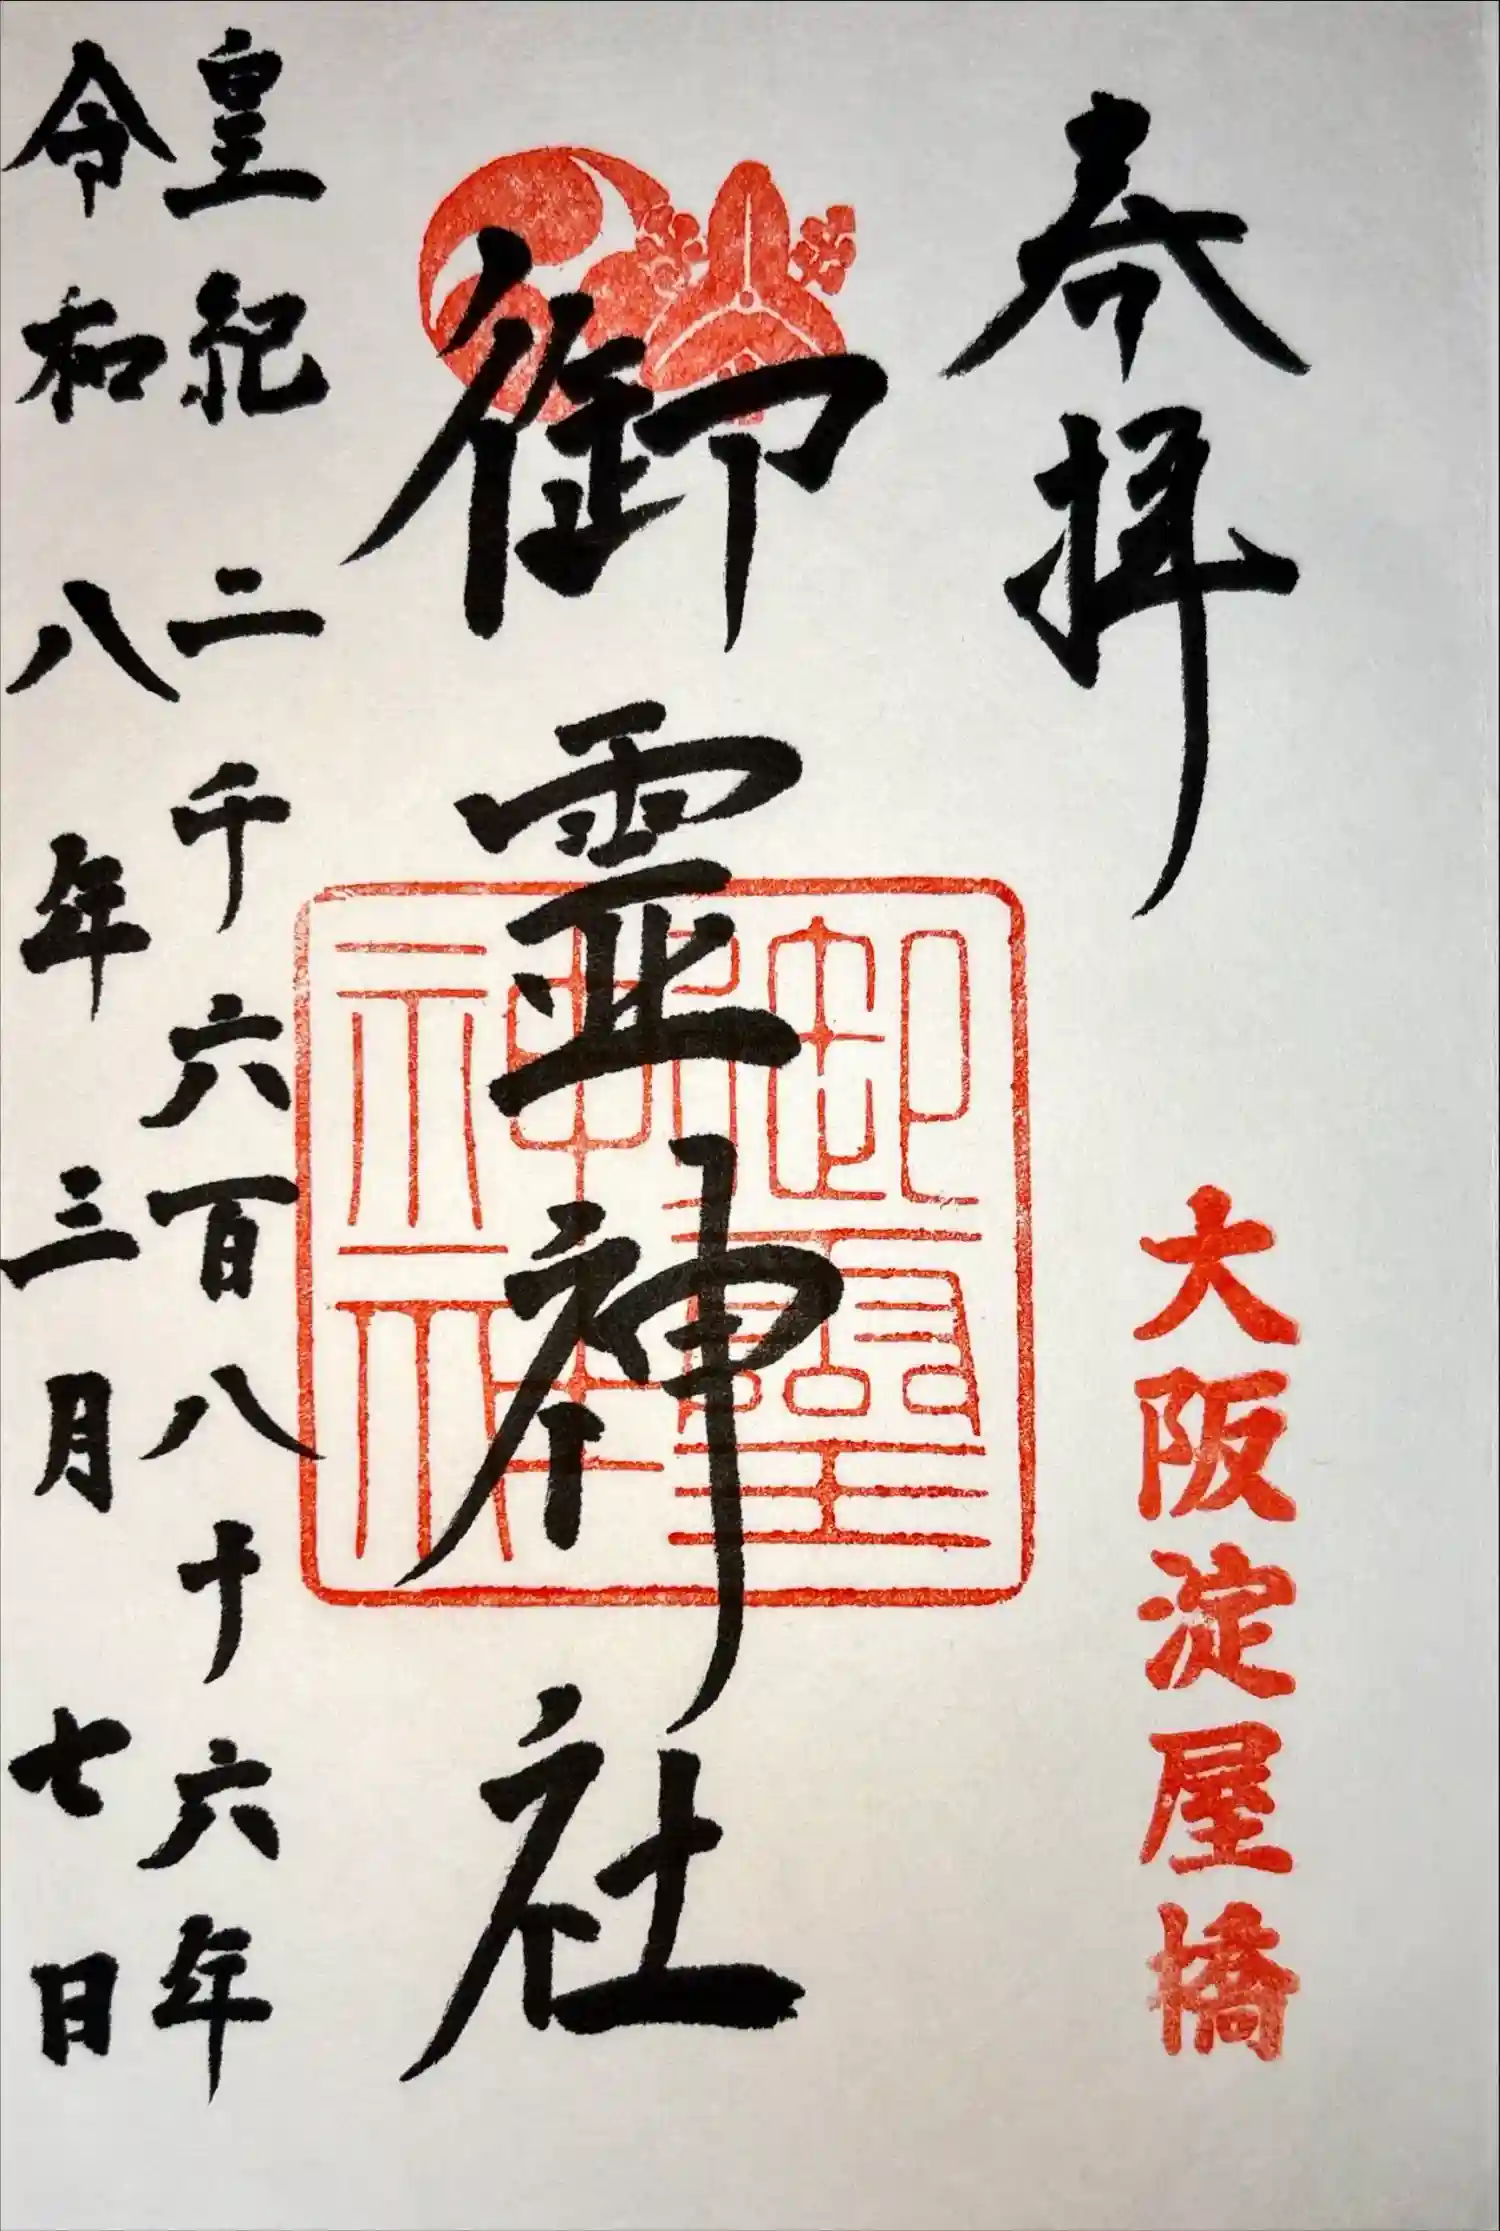 奉拝
大阪淀屋橋
御霊神社
御霊神社
皇紀二千六百八十六年
令和八年三月七日